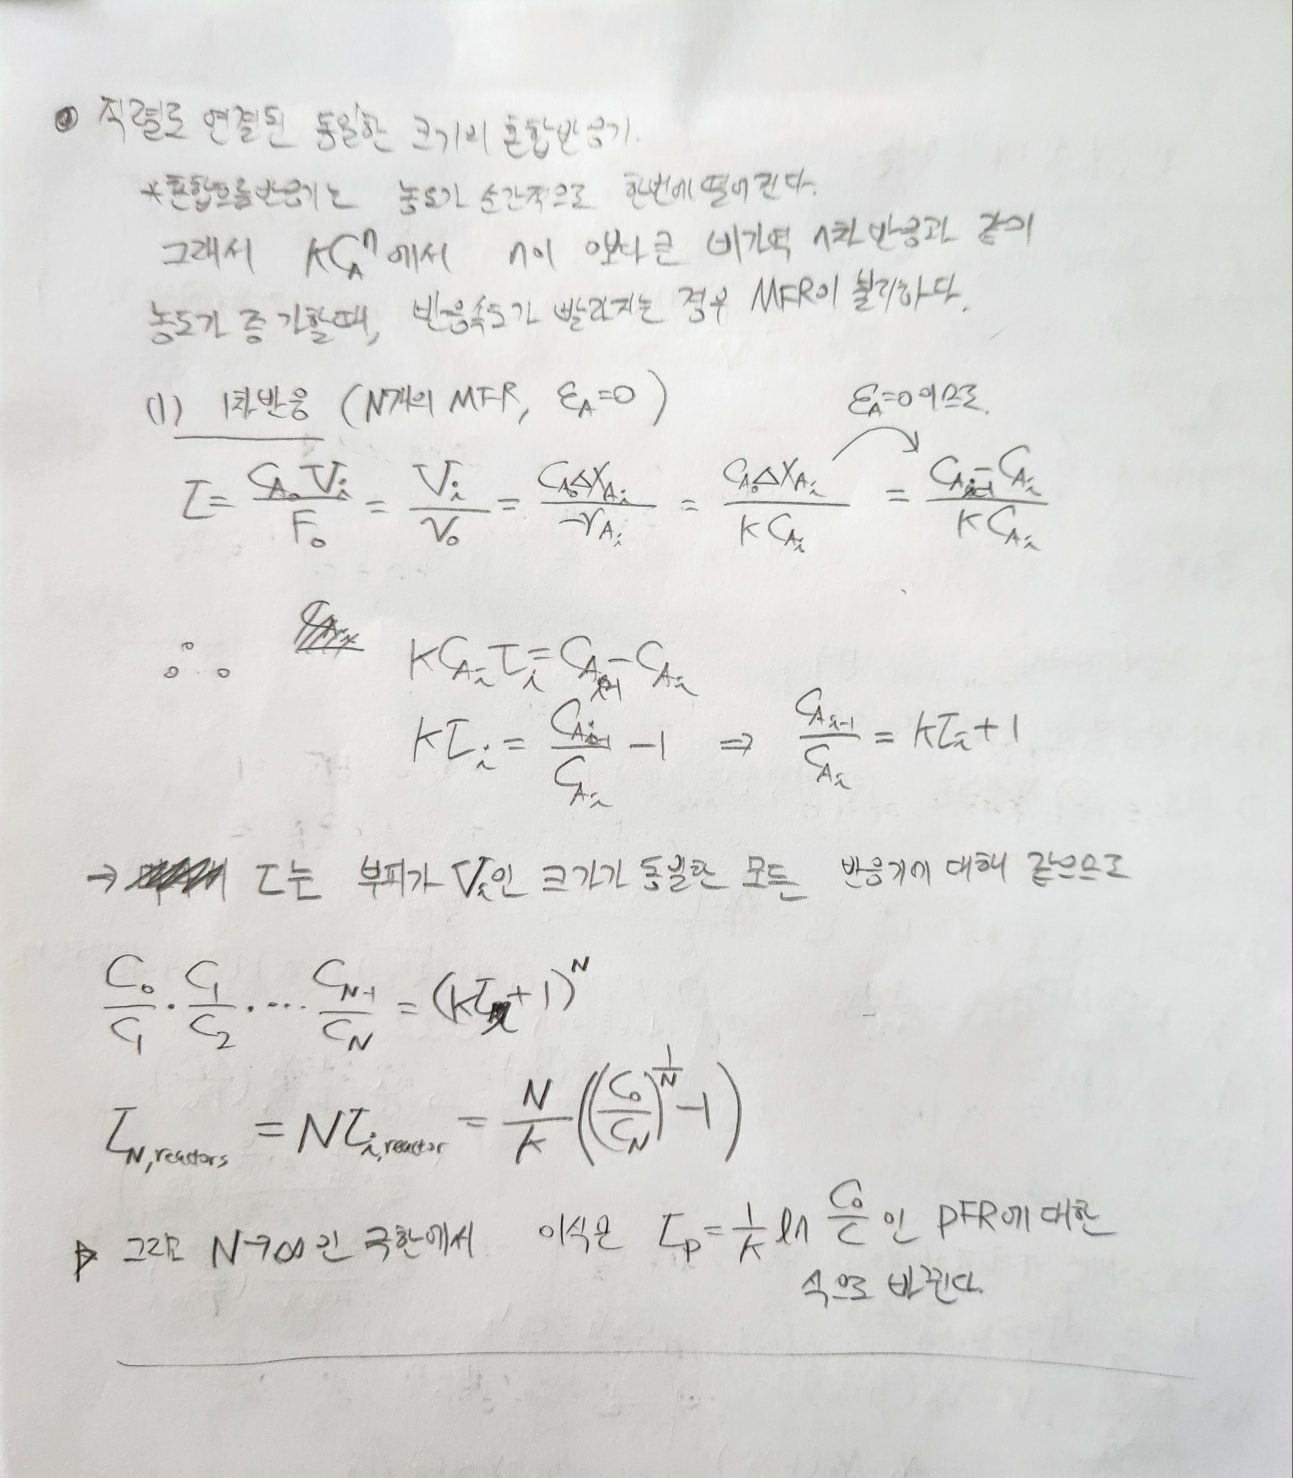 직렬로 연결된 동일한 크기의 혼합반응기.
*혼합흐름반응기는 농도가 순간적으로 한번에 떨어진다.
그래서 kC_A^n에서 n이 0보다 큰 비가역 n차 반응과 같이
농도가 증가할때, 반응속도가 빨라지는 경우 MFR이 불리하다.
(1) 1차반응 (N개의 MFR, ε_A=0)
ε_A=0이므로.
τ = C_A₀V_i/F₀ = V_i/v₀ = C_A₀ΔX_Ai/-r_Ai = C_A₀ΔX_Ai/kC_Ai = (C_Ai-1 - C_Ai)/kC_Ai
∴ kC_Ai τ_i = C_Ai-1 - C_Ai
kτ_i = C_Ai-1/C_Ai - 1 ⇒ C_Ai-1/C_Ai = kτ_i + 1
→ τ는 부피가 V_i인 크기가 동일한 모든 반응기에 대해 같으므로
C₀/C₁ · C₁/C₂ · ··· C_N-1/C_N = (kτ_i + 1)^N
τ_N,reactors = Nτ_i,reactor = N/k((C₀/C_N)^(1/N) - 1)
▷ 그리고 N→∞인 극한에서 이식은 τ_p = 1/k ln C₀/C 인 PFR에 대한
식으로 바뀐다.